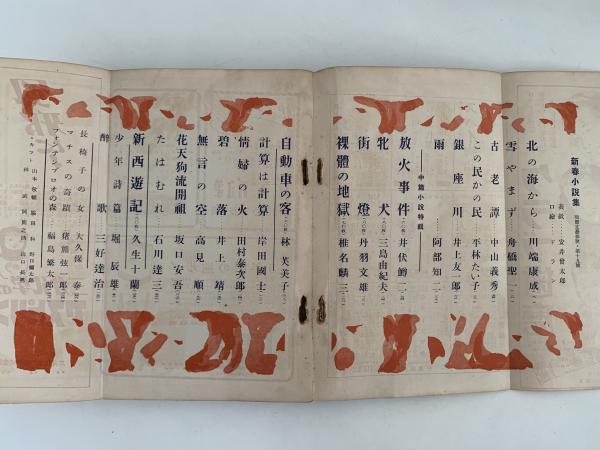 新春小説集
表紙……安井曾太郎
口繪……ドラン
北の海から……川端康成
雪やまず……舟橋聖一
古老譚……中山義秀
この民かの民……平林たい子
銀座川……井上友一郎
雨……阿部知二
中篇小説特輯
放火事件……井伏鱒二
牝犬……三島由紀夫
街燈……丹羽文雄
裸體の地獄……椎名麟三
自動車の客……林芙美子
計算は計算……岸田國士
情婦の火……田村泰次郎
碧落……井上靖
無言の空……高見順
花天狗流開祖……坂口安吾
たはむれ……石川達三
新西遊記……久生十蘭
少年詩篇……堀辰雄
醉歌……三好達治
長椅子の女……大久保泰
マチスの奇蹟……猪熊弦一郎
フォンテンブロオの森……福島繁太郎
カット